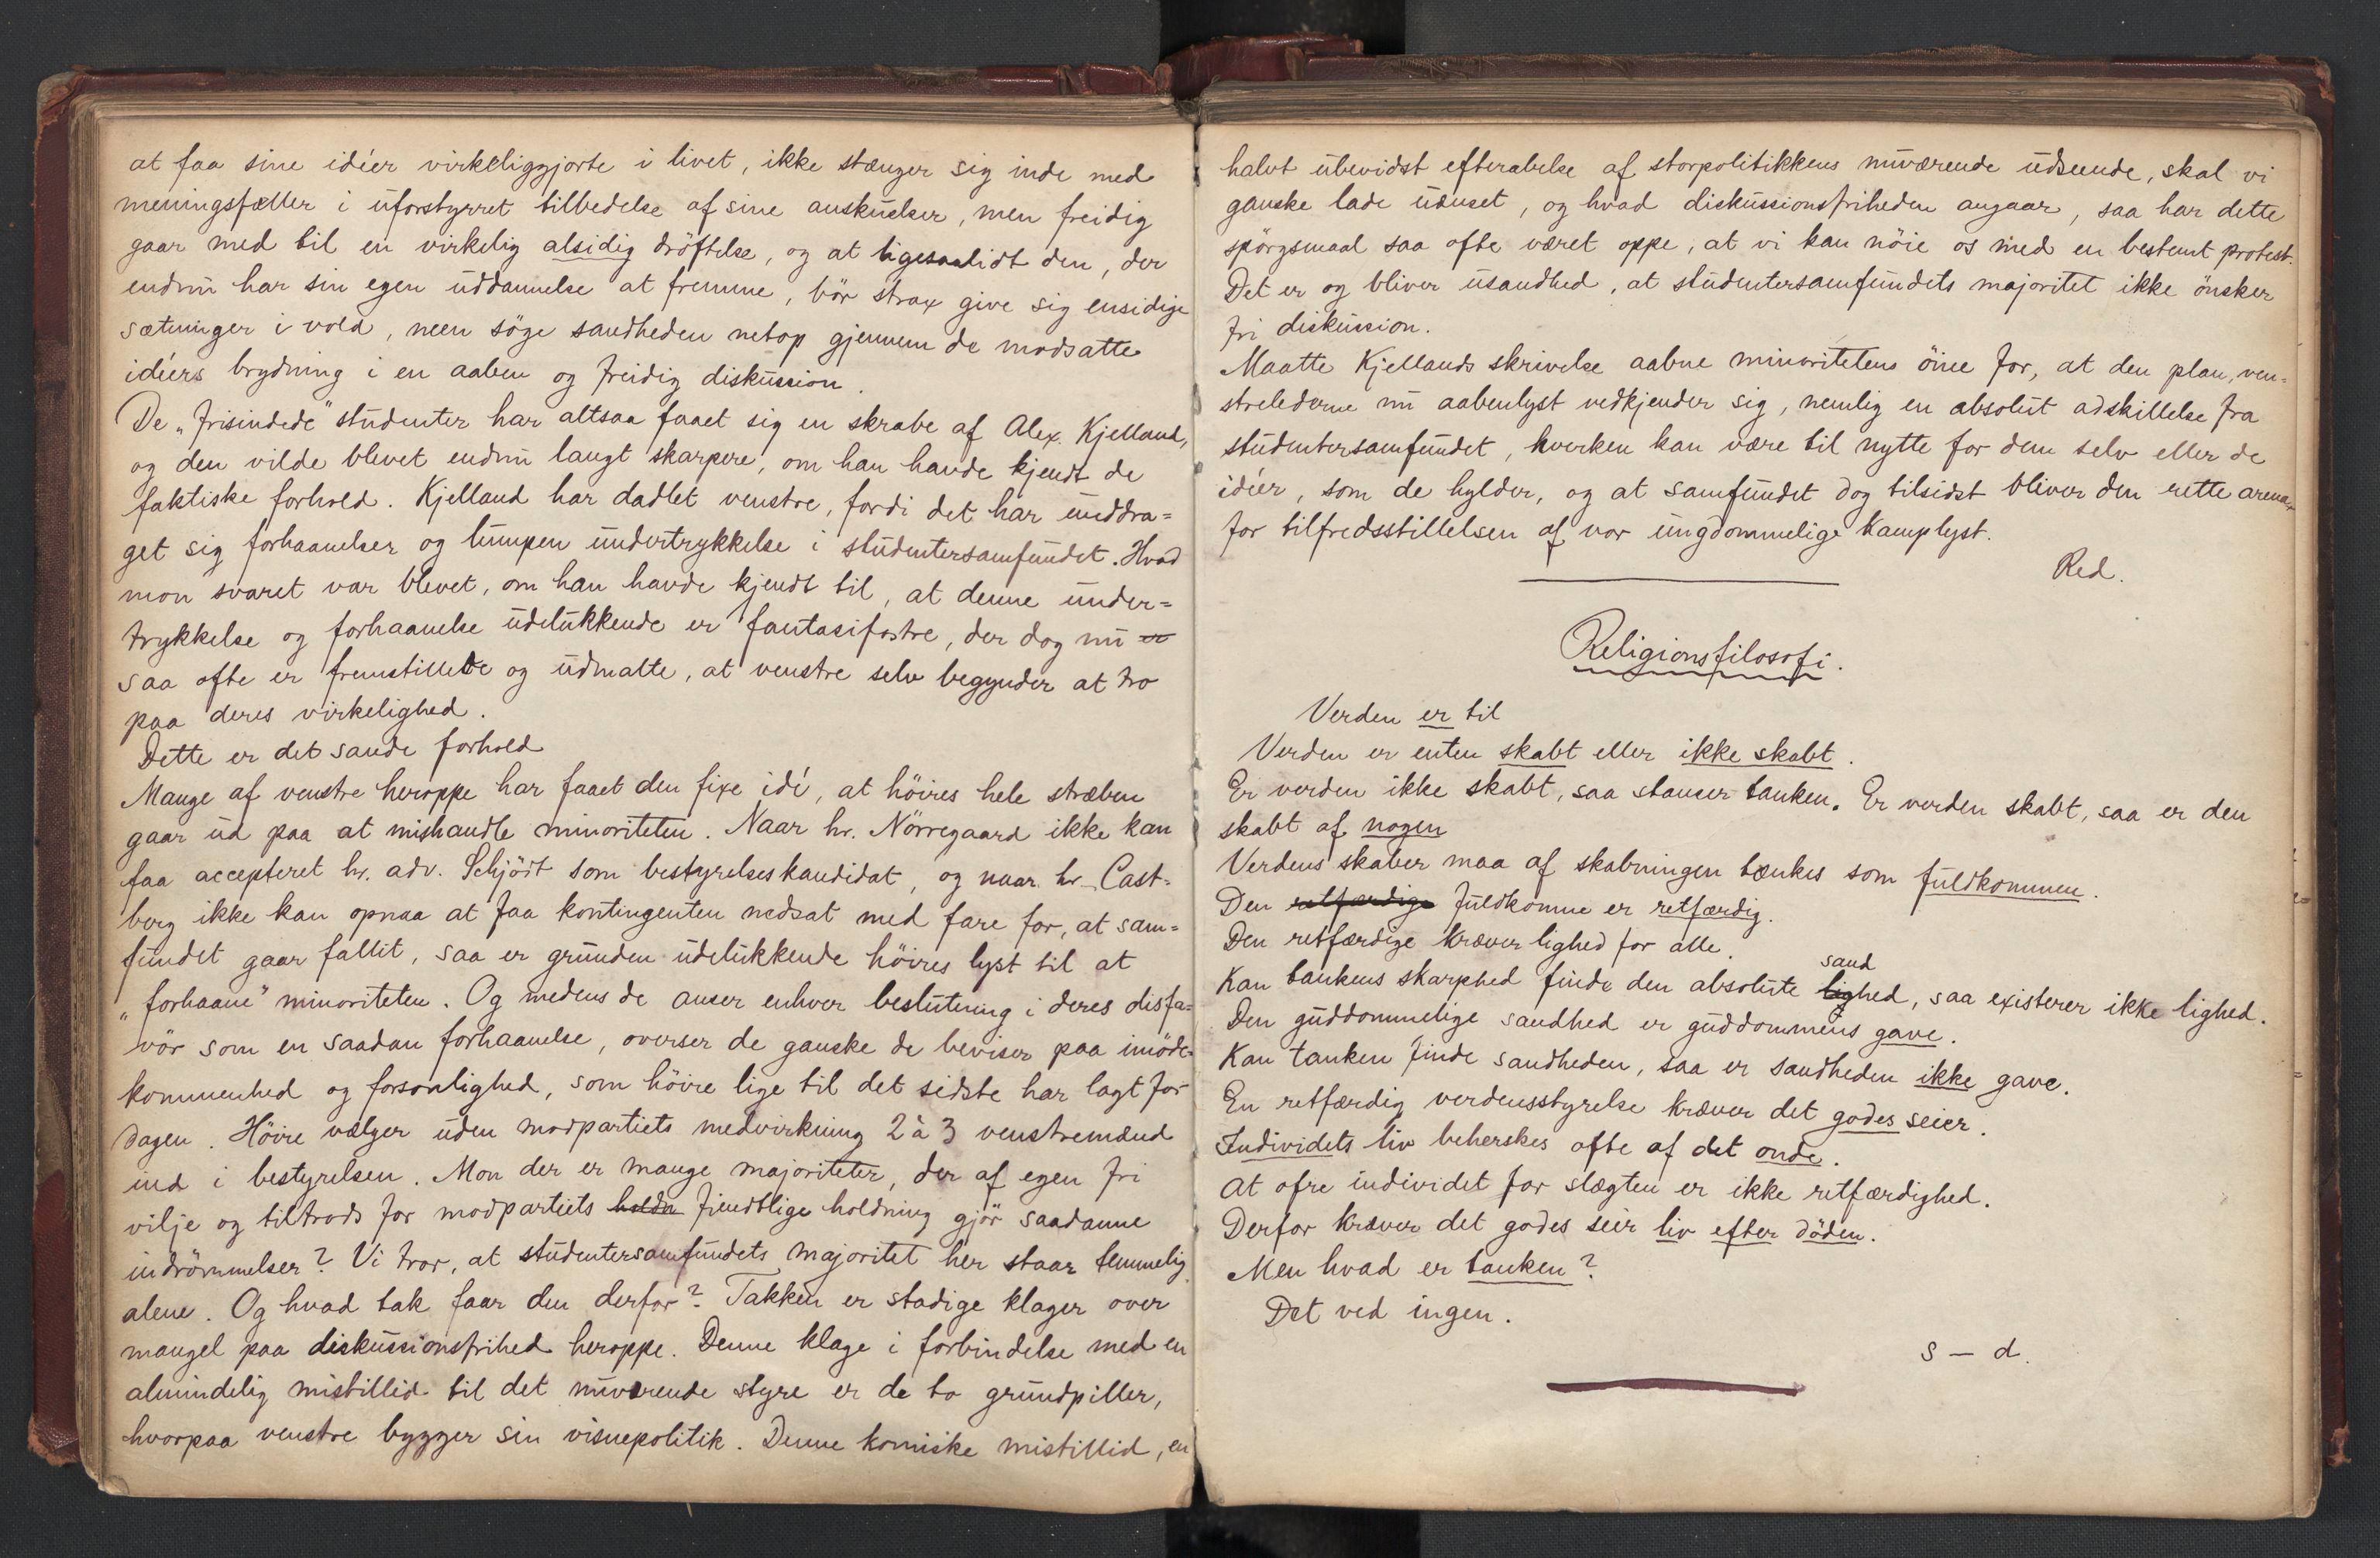 at faa sine idéer virkeliggjorte i livet, ikke stænger sig inde med
meningsfæller i uforstyrret tilbedelse af sine anskuelser, men freidig
gaar med til en virkelig alsidig dröftelse, og at ligesaalidt den, der
endnu har sin egen uddannelse at fremme, bör strax give sig ensidige
sætninger i vold, men söge sandheden netop gjennem de modsatte
idéers brydning i en aaben og freidig diskussion.
De „frisindede" studenter har altsaa faaet sig en skrabe af Alex. Kjelland,
og den vilde blevet endnu langt skarpere, om han havde kjendt de
faktiske forhold. Kjelland har dadlet venstre, fordi det har unddra=
get sig forhaanelser og lumpen undertrykkelse i studentersamfundet. Hvad
mon svaret var blevet, om han havde kjendt til, at denne under=
trykkelse og forhaanelse udelukkende er fantasifostre, der dog nu er
saa ofte er fremstillede og udmalte, at venstre selv begynder at tro
paa deres virkelighed.
Dette er det sande forhold
Mange af venstre heroppe har faaet den fixe idé, at höires hele stræben
gaar ud paa at mishandle minoriteten. Naar hr. Nörregaard ikke kan
faa accepteret hr. adv. Schjödt som bestyrelseskandidat, og naar hr. Cast=
berg ikke kan opnaa at faa kontingenten nedsat med fare for, at sam=
fundet gaar fallit, saa er grunden udelukkende höires lyst til at
„forhaane" minoriteten. Og medens de anser enhver beslutning i deres disfa=
vör som en saadan forhaanelse, overser de ganske de beviser paa imöde=
kommenhed og forsonlighed, som höire lige til det sidste har lagt for
dagen. Höire vælger uden modpartiets medvirkning 2 à 3 venstremænd
ind i bestyrelsen. Mon der er mange majoriteter, der af egen fri
vilje og tiltrods for modpartiets holdn fiendtlige holdning gjör saadanne
indrömmelser? Vi tror, at studentersamfundets majoritet her staar temmelig
alene. Og hvad tak faar den derfor? Takken er stadige klager over
mangel paa diskussionsfrihed heroppe. Denne klage i forbindelse med en
almindelig mistillid til det nuværende styre er de to grundpiller,
hvorpaa venstre bygger sin visnepolitik. Denne komiske mistillid, en
halvt ubevidst efterabelse af storpolitikkens nuværende udseende, skal vi
ganske lade uænset, og hvad diskussionsfriheden angaar, saa har dette
spörgsmaal saa ofte været oppe, at vi kan nöie os med en bestemt protest.
Det er og bliver usandhed, at studentersamfundets majoritet ikke önsker
fri diskussion.
Maatte Kjellands skrivelse aabne minoritetens öine for, at den plan, ven=
strelederne nu aabenlyst vedkjender sig, nemlig en absolut adskillelse fra
studentersamfundet, hverken kan være til nytte for dem selv eller de
idéer, som de hylder, og at samfundet dog tilsidst bliver den rette arena
for tilfredsstillelsen af vor ungdommelige kamplyst.
Red.
Religionsfilosofi.
Verden er til
Verden er enten skabt eller ikke skabt.
Er verden ikke skabt, saa stanser tanken. Er verden skabt, saa er den
skabt af nogen
Verdens skaber maa af skabningen tænkes som fuldkommen.
Den retfærdige fuldkomne er retfærdig.
Den retfærdige kræver lighed for alle.
sand
Kan tankens skarphed finde den absolute lighed, saa existerer ikke lighed.
Den guddommelige sandhed er guddommens gave.
Kan tanken finde sandheden, saa er sandheden ikke gave.
En retfærdig verdensstyrelse kræver det godes seier.
Individets liv beherskes ofte af det onde.
At ofre individet for slægten er ikke retfærdighed.
Derfor kræver det godes seir liv efter döden.
Men hvad er tanken?
Det ved ingen.
s — d.